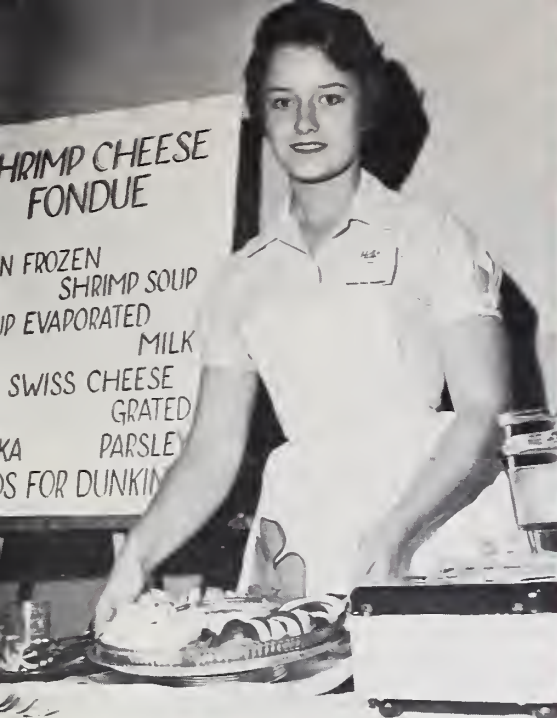 HRIMP CHEESE
FONDUE
N FROZEN
SHRIMP SOUP
UP EVAPORATED
MILK
SWISS CHEESE
GRATED
KA PARSLEY
DS FOR DUNKIN